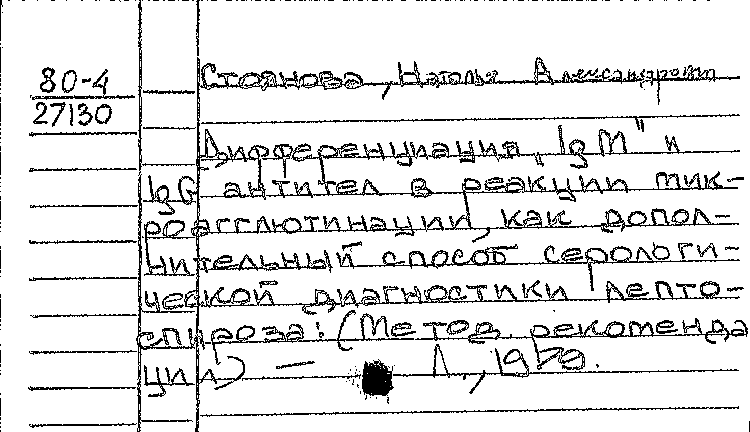 80-4
27130
Стоянова, Наталья Александровн
Дифференциация „IgM" и
IgG антител в реакции мик-
роагглютинации, как допол-
нительный способ серологи-
ческой диагностики лепто-
спироза: (Метод. рекоменда
ции) — Л., 1979.